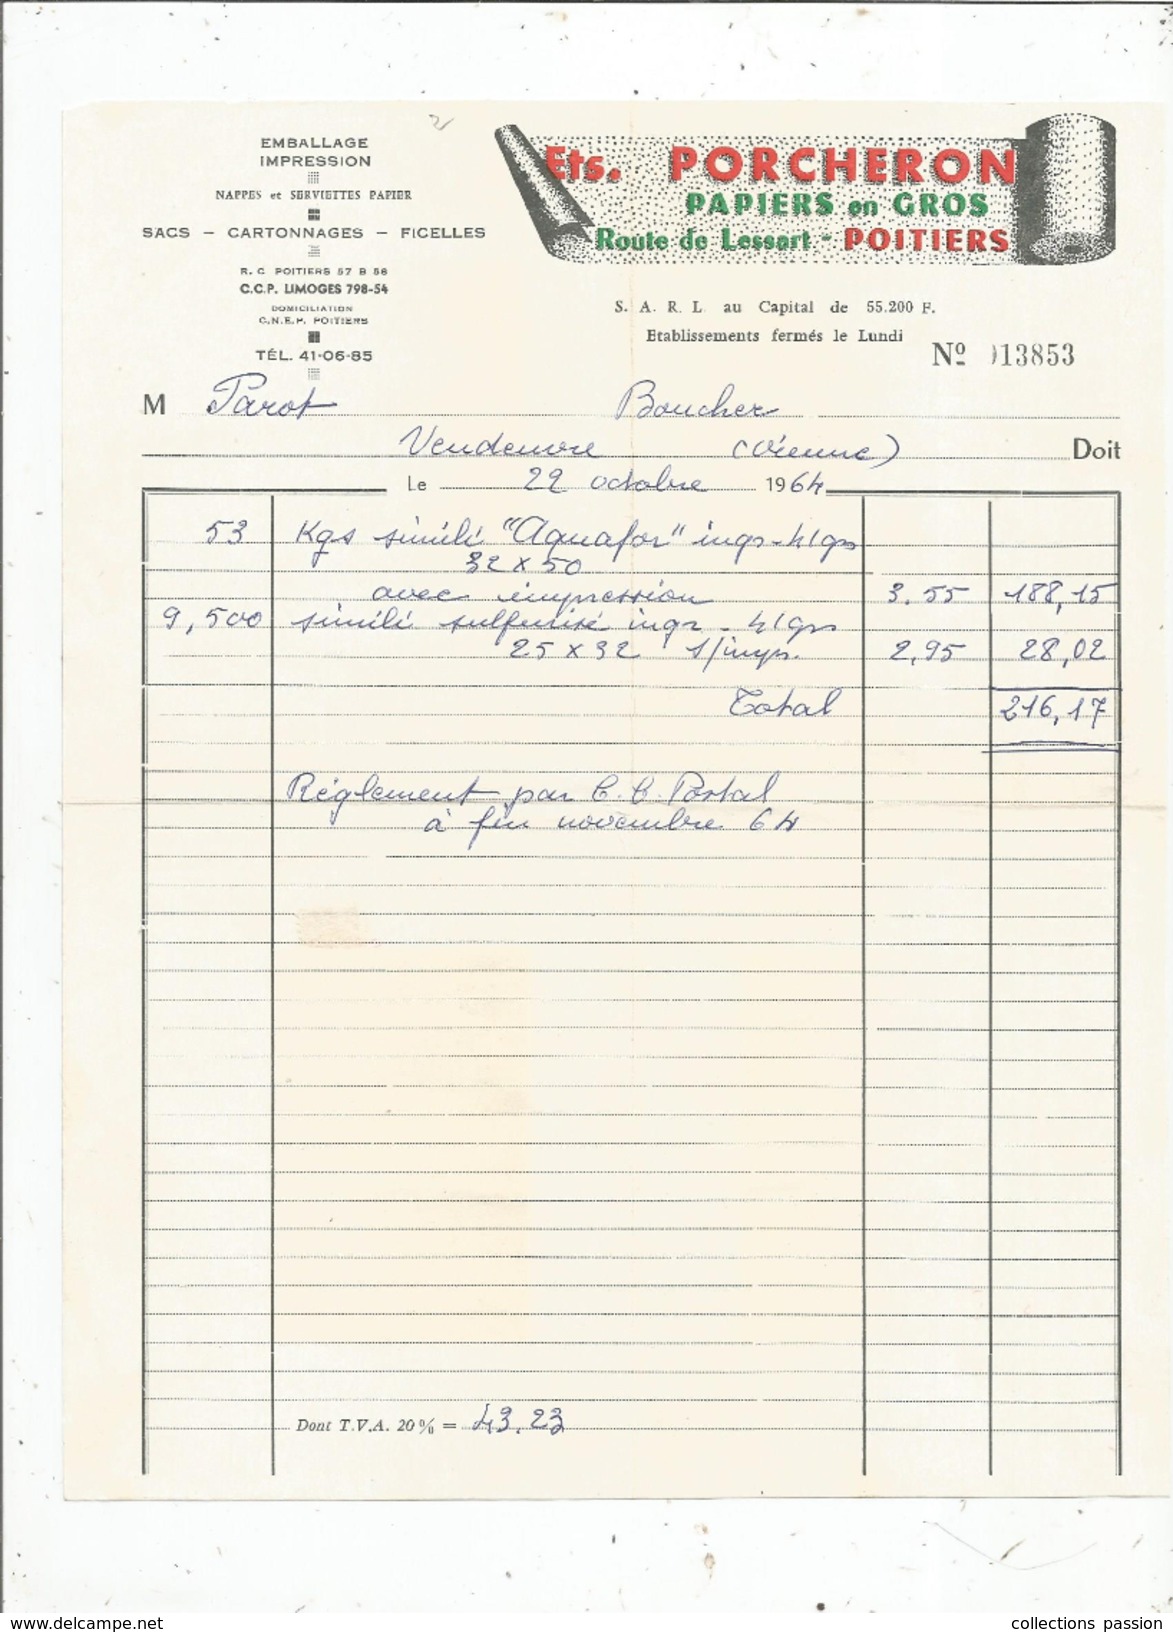 EMBALLAGE
IMPRESSION
NAPPES et SERVIETTES PAPIER
SACS – CARTONNAGES – FICELLES
R. C. POITIERS 57 B 58
C.C.P. LIMOGES 798-54
DOMICILIATION
C.N.E.P. POITIERS
TÉL. 41-06-85
Ets. PORCHERON
PAPIERS en GROS
Route de Lessart - POITIERS
S. A. R. L. au Capital de 55.200 F.
Etablissements fermés le Lundi
Nº 013853
M Parot Boucher
Vendeuvre (Vienne) Doit
Le 22 octobre 1964
53 Kgs simili "Aquafor" ings-4/gs
32 x 50
avec impression 3.55 188,15
9,500 simili sulfurisé ings - 4/gs
25 x 32 s/imp. 2,95 28,02
Total 216,17
Règlement par C. C. Postal
à fin novembre 64
Dont T.V.A. 20 % = 43.23
collections passion